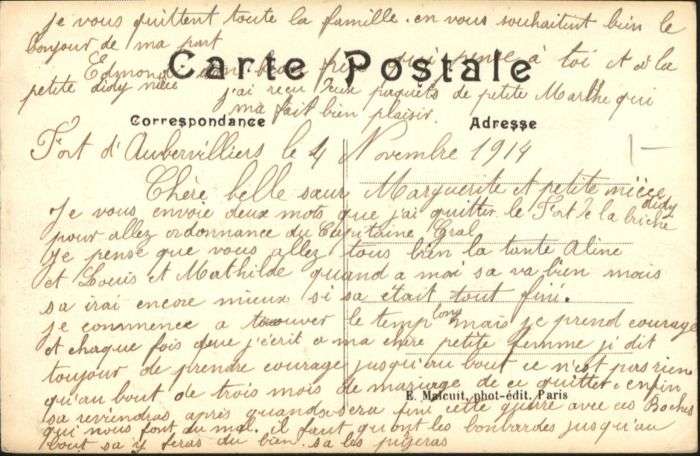 je vous quittent toute la famille. en vous souhaitent bien le
bonjour de ma part
Edmond. ton beau frère qui pense à toi et a la
Carte Postale
petite didy nièce j'ai reçu deux paquets de petite Marthe qui
ma fait bien plaisir.
Correspondance
Adresse
Fort d'Aubervilliers le 4 Novembre 1914
1-
Chère belle sœur Marguerite et petite nièce didy
Je vous envoie deux mots que j'ai quitter le Fort de la briche
pour allez ordonnance du Capitaine Gral
je pense que vous allez tous bien la tante Aline
et Louis et Mathilde quand a moi sa va bien mais
sa irai encore mieux si sa était tout fini.
je commence a trouver le temp long mais je prend courage
et chaque fois que j'écrit a ma chère petite femme j'dit
toujour de prendre courage jusqu'au bout ce n'est pas rien
qu'au bout de trois mois de mariage de ce quitter. enfin
E. Malcuit, phot-édit. Paris
sa reviendras après quand sera fini cette guerre avec ces Boches
qui nous font du mal. il faut qu'ont les bonbardes jusqu'au
bout sa y feras du bien. sa les